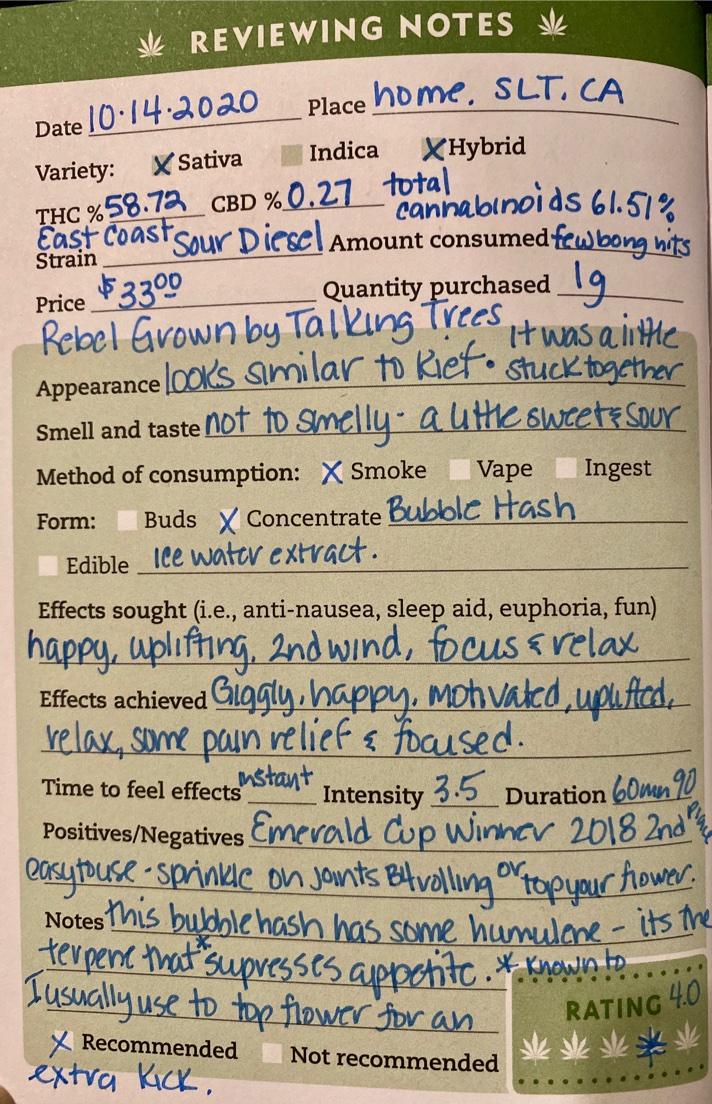 REVIEWING NOTES
Date 10·14·2020 Place home. SLT. CA
Variety: X Sativa Indica X Hybrid
THC % 58.72 CBD % 0.27 total cannabinoids 61.51%
Strain East Coast Sour Diesel Amount consumed few bong hits
Price $33.00 Quantity purchased 1g
Rebel Grown by Talking Trees It was a little
Appearance looks similar to Kief. stuck together
Smell and taste not to smelly - a little sweet & sour
Method of consumption: X Smoke Vape Ingest
Form: Buds X Concentrate Bubble Hash
Edible Ice water extract.
Effects sought (i.e., anti-nausea, sleep aid, euphoria, fun)
happy, uplifting, 2nd wind, focus & relax
Effects achieved Giggly, happy, motivated, uplifted,
relax, some pain relief & focused.
Time to feel effects instant Intensity 3.5 Duration 60min 90
Positives/Negatives Emerald Cup Winner 2018 2nd Place
easy to use - sprinkle on joints B4 rolling or top your flower.
Notes this bubble hash has some humulene - its the
terpene that * supresses appetite. * known to
I usually use to top flower for an
RATING 4.0
X Recommended Not recommended
extra kick.